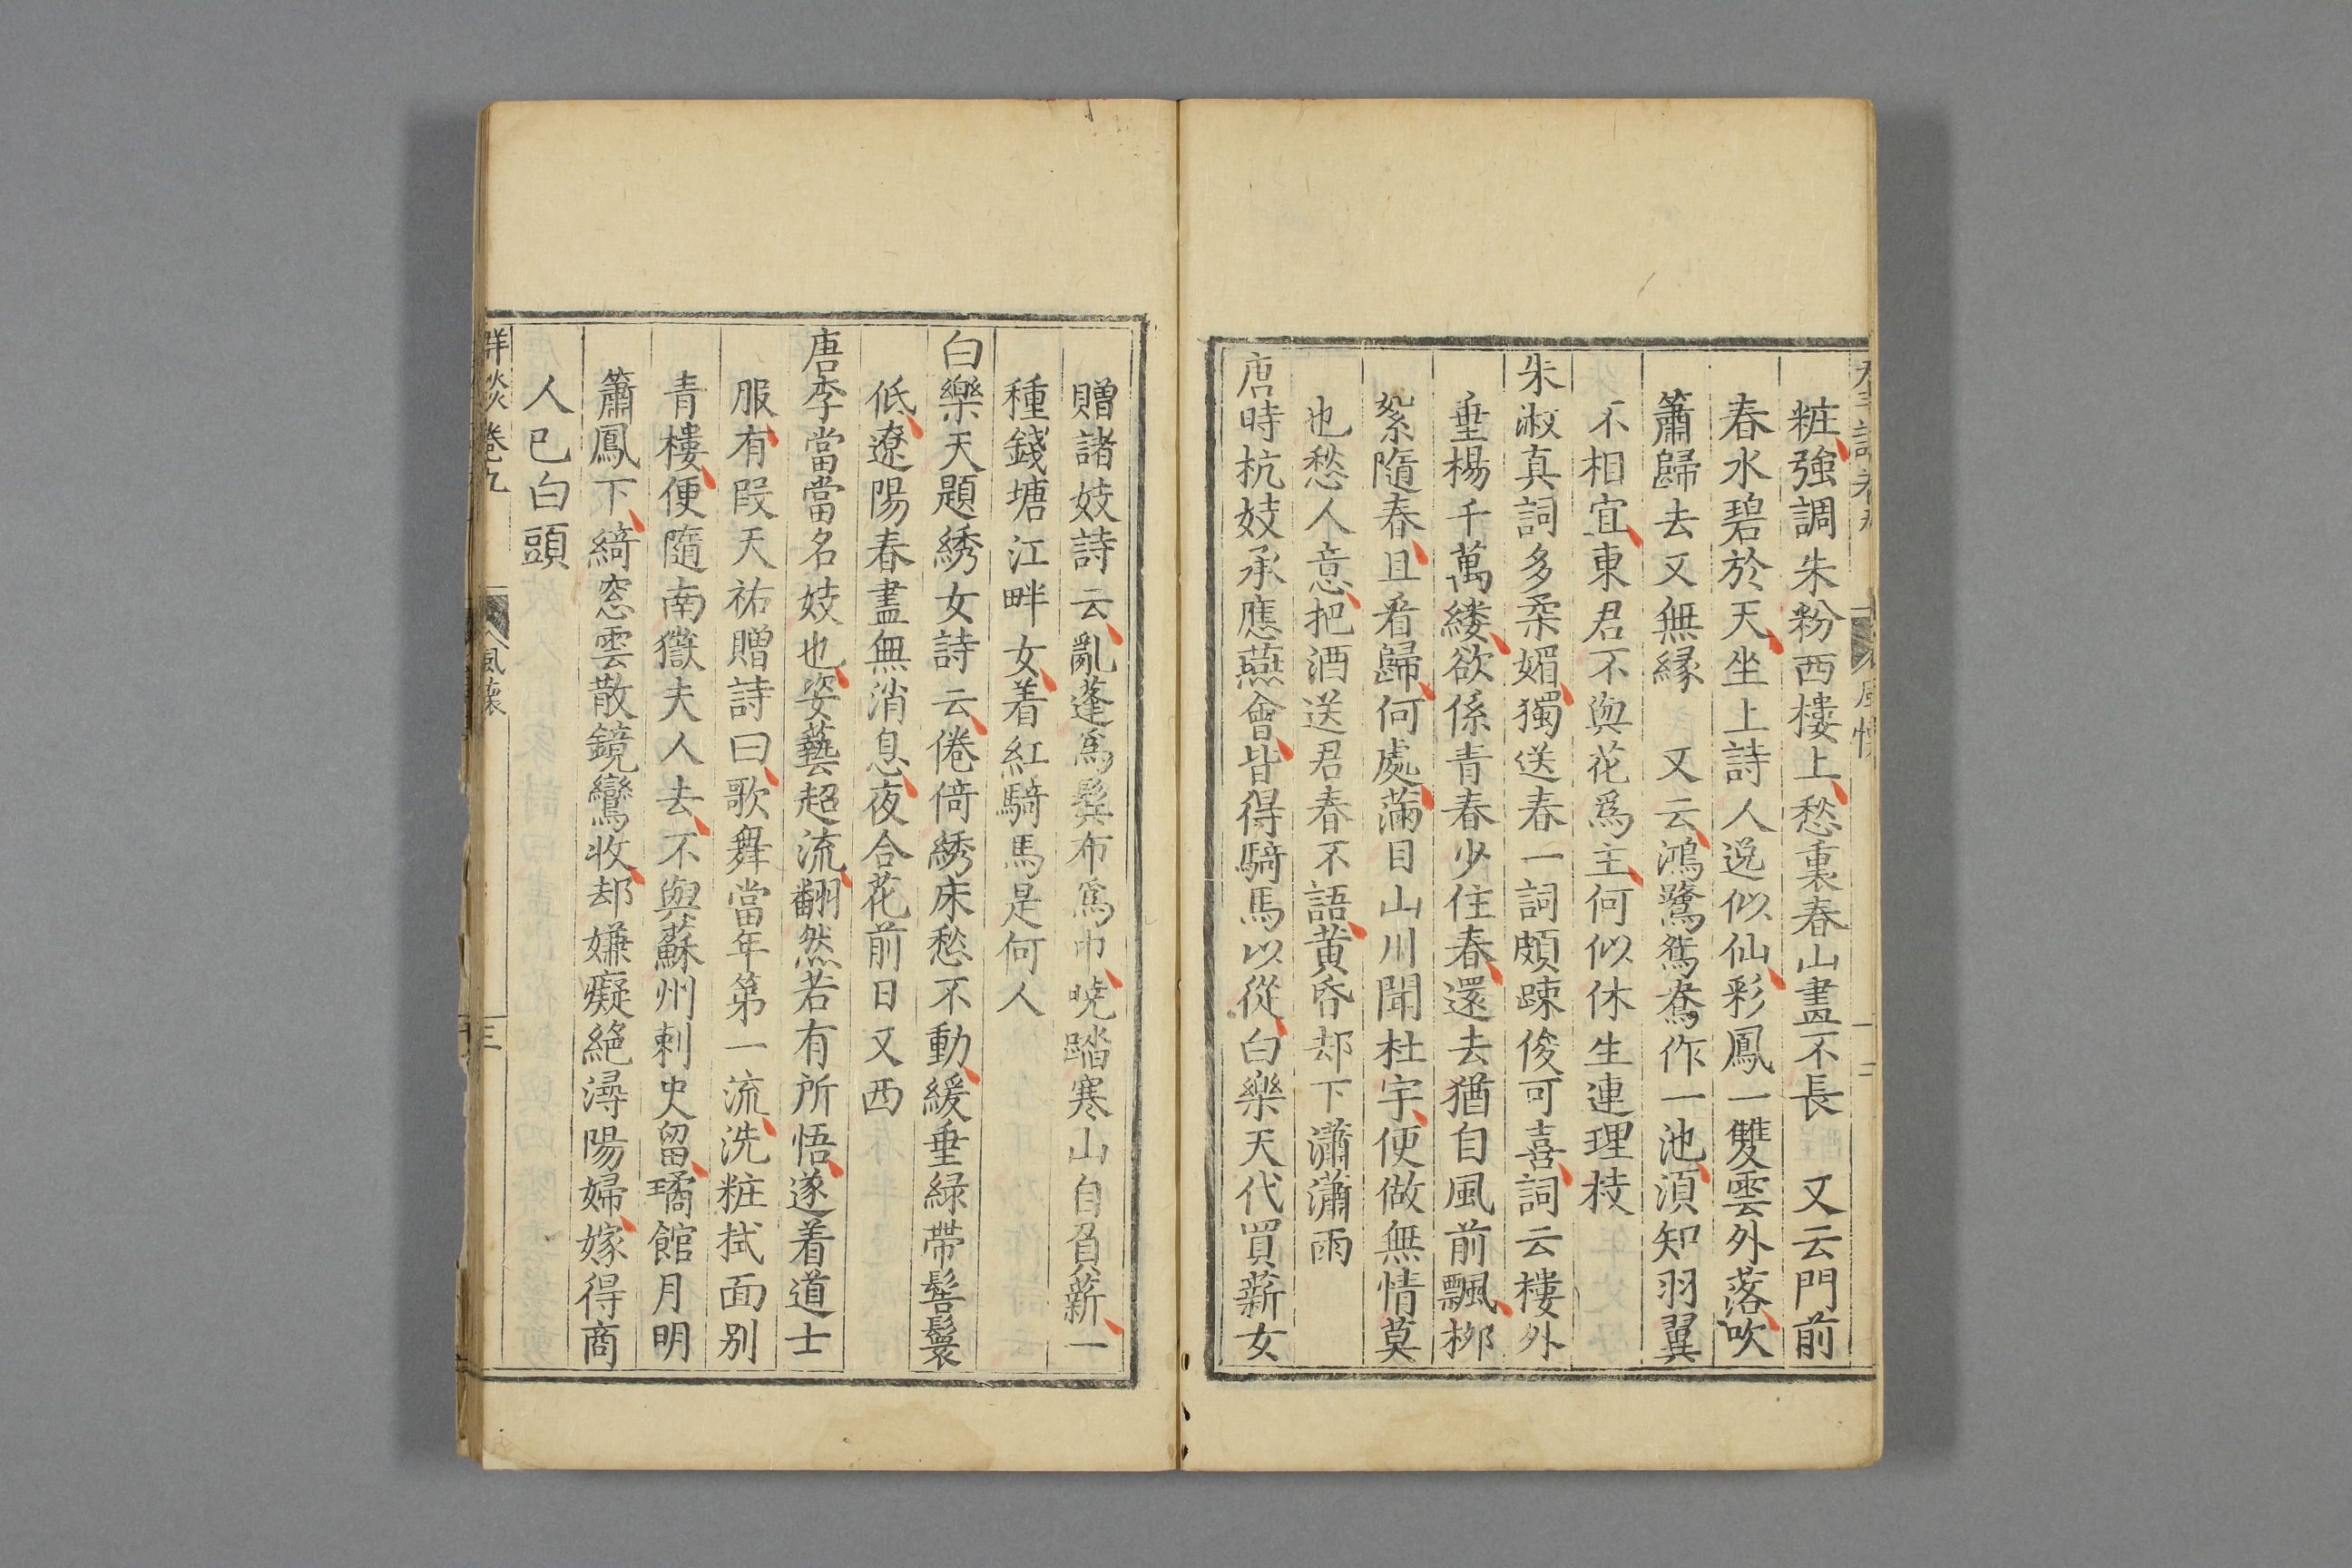 粧強調朱粉西樓上愁裏春山畫不長　又云門前
春水碧於天坐上詩人逸似仙彩鳳一雙雲外落吹
簫歸去又無緣　又云鴻鷺鴛鴦作一池湏知羽翼
不相宜東君不與花爲主何似休生連理枝
朱淑真詞多柔媚獨送春一詞頗踈俊可喜詞云樓外
垂楊千萬縷欲係青春少住春還去猶自風前飄柳
絮隨春且看歸何處滿目山川聞杜宇便做無情莫
也愁人意把酒送君春不語黄昏却下瀟瀟雨
唐時杭妓承應燕會皆得騎馬以從白樂天代買薪女
贈諸妓詩云亂蓬爲鬂布爲巾曉踏寒山自負薪一
種錢塘江畔女着紅騎馬是何人
白樂天題綉女詩云倦倚綉床愁不動緩垂緑帶髻鬟
低遼陽春盡無消息夜合花前日又西
唐李當當名妓也姿藝超流翻然若有所悟遂着道士
服有叚天祐贈詩曰歌舞當年第一流洗粧拭面别
青樓便隨南嶽夫人去不與蘇州刺史留璚館月明
簫鳳下綺窓雲散鏡鸞收却嫌癡絶潯陽婦嫁得商
人已白頭
群談卷九　風懷　三